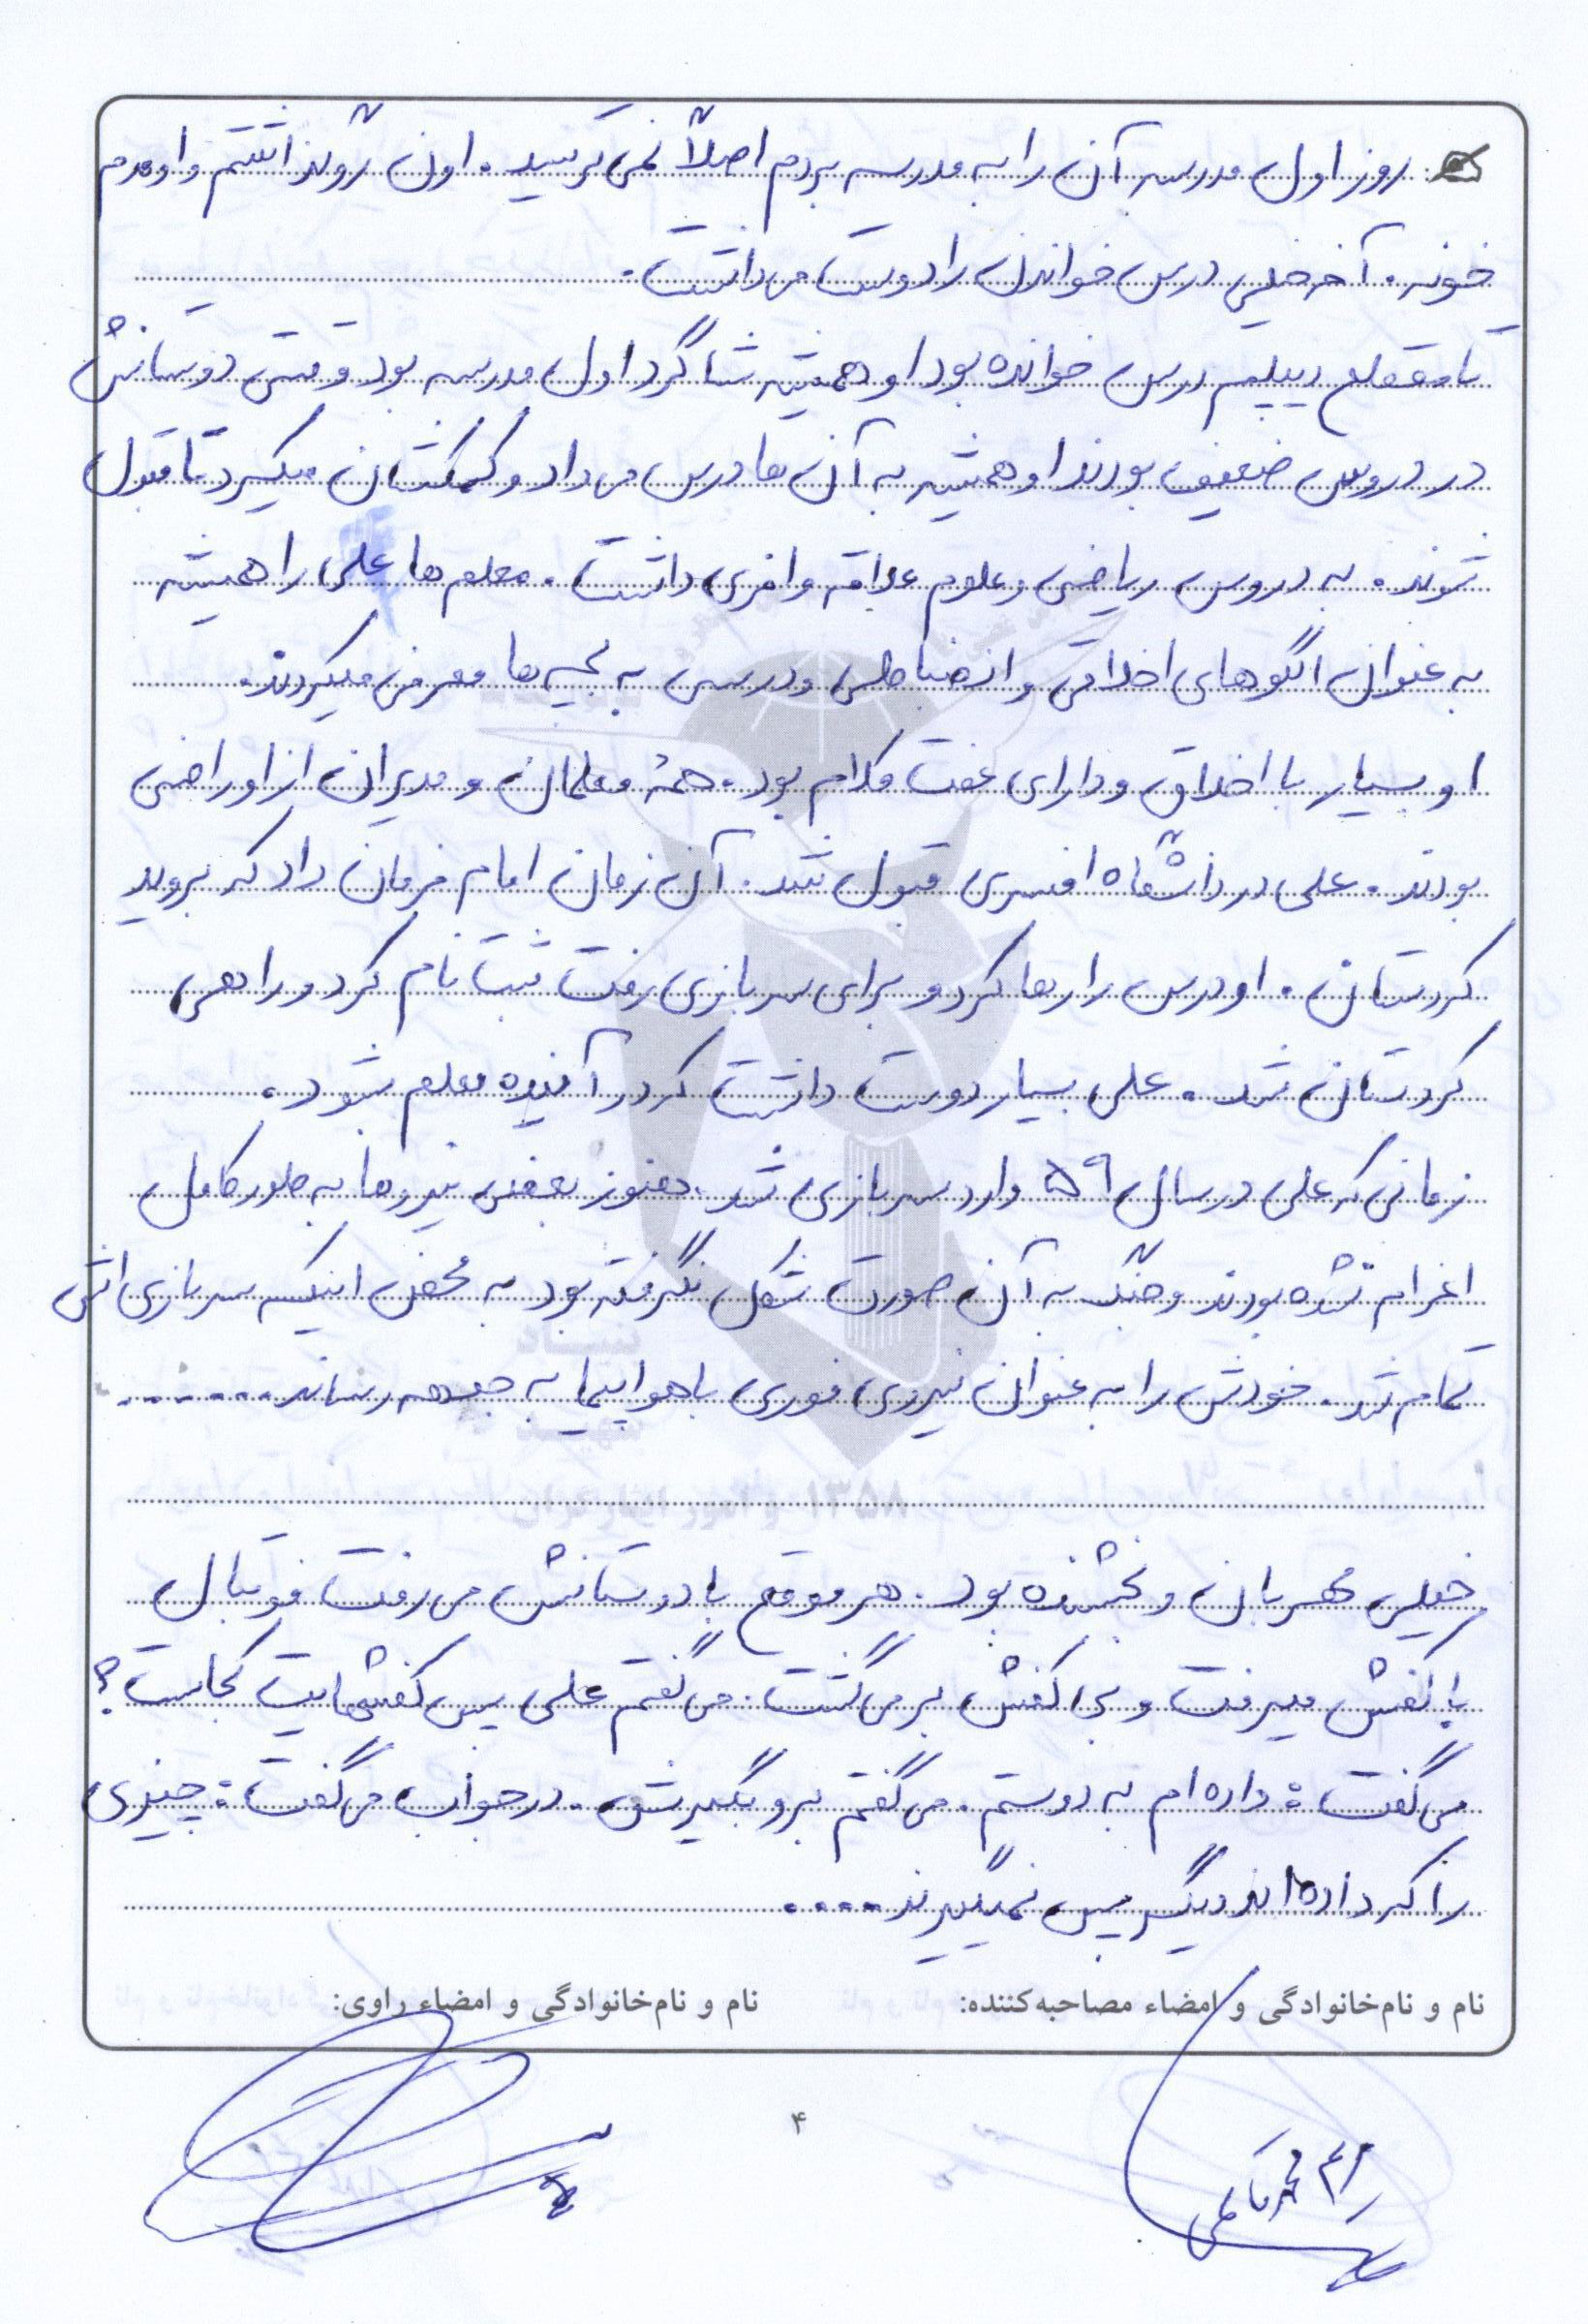 روز اول مدرسه آن را به مدرسه بردم اصلاً نمی ترسید. اون رو گذاشتم و اومدم
خونه. آخر خیلی درس خواندن را دوست می داشت.
تا مقطع دیپلم درس خوانده بود او همیشه شاگرد اول مدرسه بود وقتی دوستانش
در دروس ضعیف بودند او همیشه به آن ها درس می داد و کمکشان میکرد تا قبول
شوند. به دروس ریاضی و علوم علاقه وافری داشت. معلم ها علی را همیشه
به عنوان الگوهای اخلاقی و انضباطی و درسی به بچه ها معرفی میکردند.
او بسیار با اخلاق و دارای عفت کلام بود. همهٔ معلمان و مدیران از او راضی
بودند. علی در دانشگاه افسری قبول شد. آن زمان امام فرمان داد که بروید
کردستان. او درس را رها کرد و برای سربازی رفت ثبت نام کرد و راهی
کردستان شد. علی بسیار دوست داشت که در آینده معلم شود.
زمانی که علی در سال ۵۹ وارد سربازی شد، هنوز بعضی نیروها به طور کامل
اغرام نشده بودند و جنگ به آن صورت شکل نگرفته بود به محض اینکه سربازی اش
تمام شد. خودش را به عنوان نیروی فوری با هواپیما به جبهه رساند......
۱۳۵۸
خیلی مهربان و بخشنده بود. هر موقع با دوستانش می رفت فوتبال
با کفش میرفت و بی کفش بر می گشت. می گفتم علی پس کفشهایت کجاست؟
می گفت: داده ام به دوستم. می گفتم برو بگیرش. در جواب می گفت: چیزی
را که داده اند دیگر پس نمیگیرند....
نام و نام‌خانوادگی و امضاء مصاحبه‌کننده: نام و نام‌خانوادگی و امضاء راوی:
۴